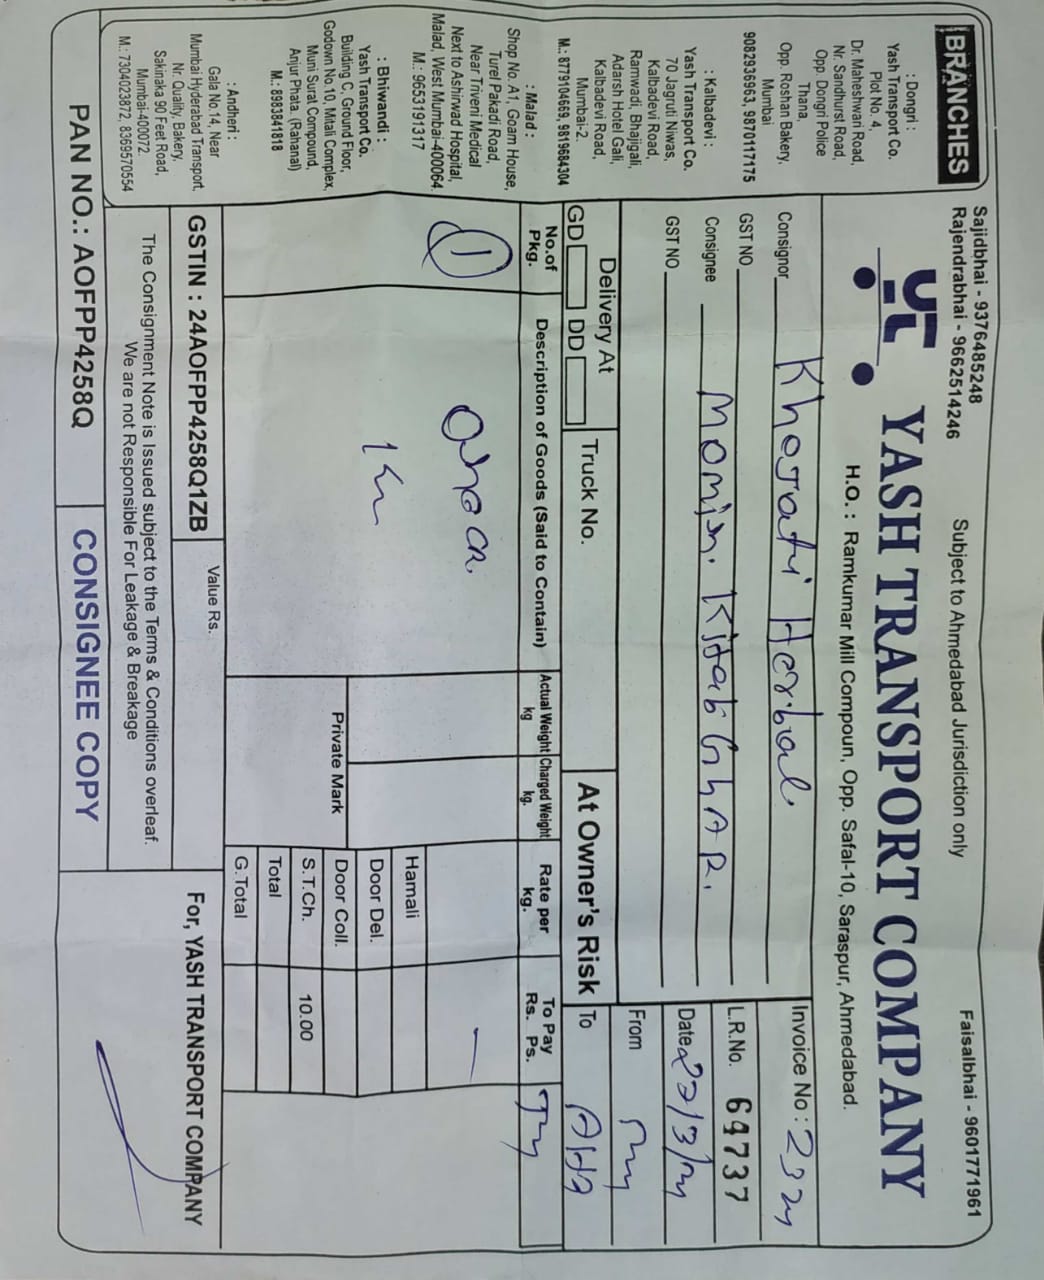 BRANCHES
: Dongri :
Yash Transport Co.
Plot No. 4,
Dr. Maheshwari Road,
Nr. Sandhurst Road,
Opp. Dongri Police
Thana,
Opp. Roshan Bakery,
Mumbai
9082936963, 9870117175
: Kalbadevi :
Yash Transport Co.
70 Jagruti Niwas,
Kalbadevi Road,
Ramwadi, Bhajigali,
Adarsh Hotel Gali,
Kalbadevi Road,
Mumbai-2.
M.: 8779104669, 9819684304
: Malad :
Shop No. A1, Goam House,
Turel Pakadi Road,
Near Triveni Medical
Next to Ashirwad Hospital,
Malad, West Mumbai-400064.
M.: 9653191317
: Bhiwandi :
Yash Transport Co.
Building C, Ground Floor,
Godown No.10, Mitali Complex,
Muni Surat Compound,
Anjur Phata (Rahanal)
M.: 893841818
: Andheri :
Gala No.14, Near
Mumbai Hyderabad Transport,
Nr. Quality, Bakery,
Sakinaka 90 Feet Road,
Mumbai-400072.
M.: 7304023872, 8369570554
Sajidbhai - 9376485248
Rajendrabhai - 9662514246
Subject to Ahmedabad Jurisdiction only
Faisalbhai - 9601771961
YASH TRANSPORT COMPANY
H.O. : Ramkumar Mill Compoun, Opp. Safal-10, Saraspur, Ahmedabad.
Consignor Khojati Herbal
GST NO
Consignee Momin. Kitab GhAR.
GST NO
Invoice No :
L.R.No. 64737
Date
From
To
Delivery At
GD DD
Truck No.
At Owner's Risk
No.of Pkg.
Description of Goods (Said to Contain)
Actual Weight kg
Charged Weight kg.
Rate per kg.
To Pay Rs. Ps.
1
Hamali
Door Del.
Private Mark
Door Coll.
S.T.Ch. 10.00
Total
G.Total
GSTIN : 24AOFPP4258Q1ZB
Value Rs.
The Consignment Note is Issued subject to the Terms & Conditions overleaf.
We are not Responsible For Leakage & Breakage
For, YASH TRANSPORT COMPANY
PAN NO.: AOFPP4258Q
CONSIGNEE COPY